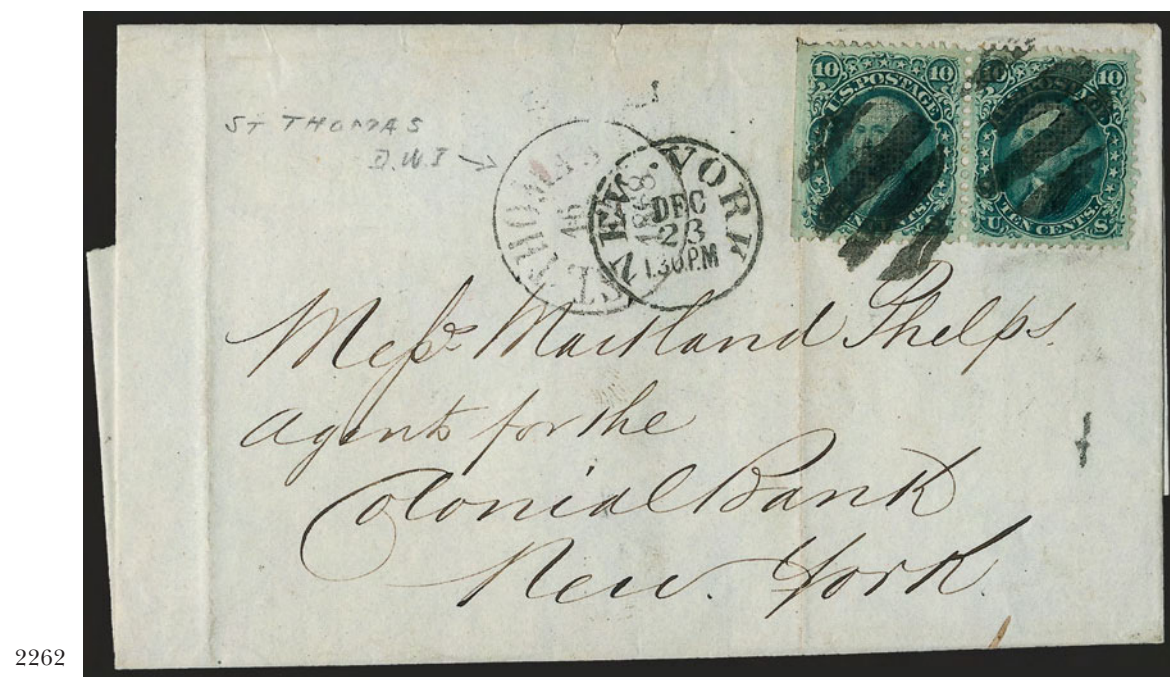 ST THOMAS
D.W.I
ST. THOMAS
16
1868
NEW YORK
DEC
23
1.30.P.M
10 10
U.S. POSTAGE
TEN CENTS.
U. S.
10 10
U.S. POSTAGE
TEN CENTS.
U. S.
Messrs Maitland Phelps.
Agents for the
Colonial Bank
New. York.
2262